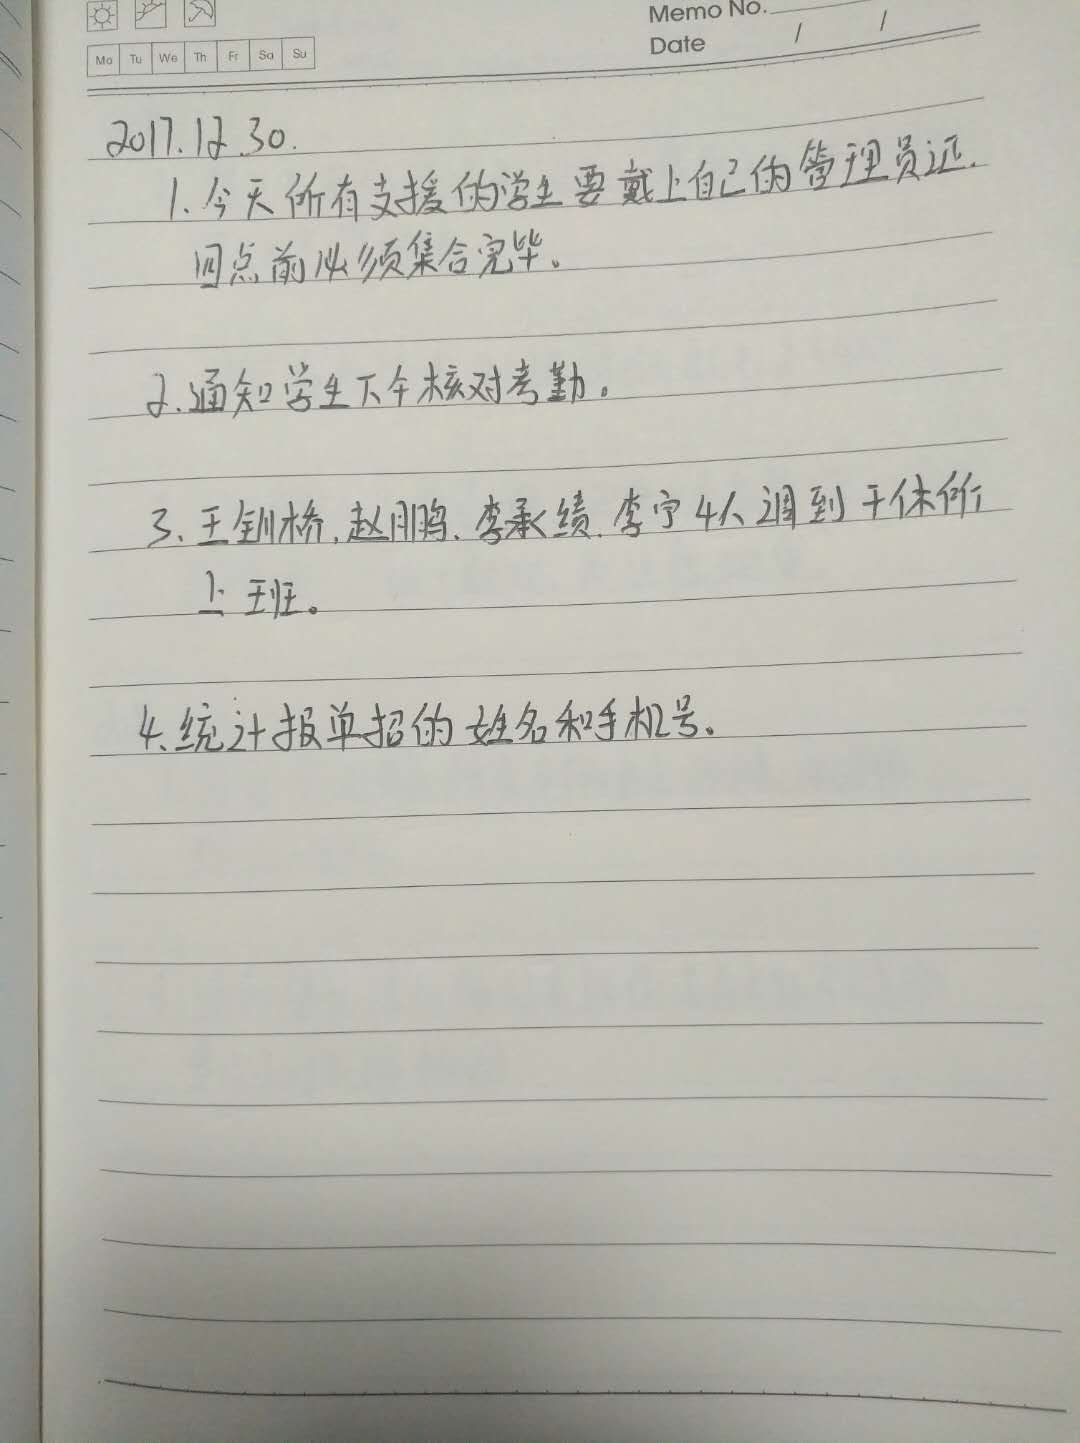 Memo No.
Mo Tu We Th Fr Sa Su
Date / /
2017.12.30.
1.今天所有支援的学生要戴上自己的管理员证.
四点前必须集合完毕。
2.通知学生下午核对考勤。
3、王钏桥,赵朋鹏、李承绩、李宁4人调到干休所
上班。
4、统计报单招的姓名和手机号、